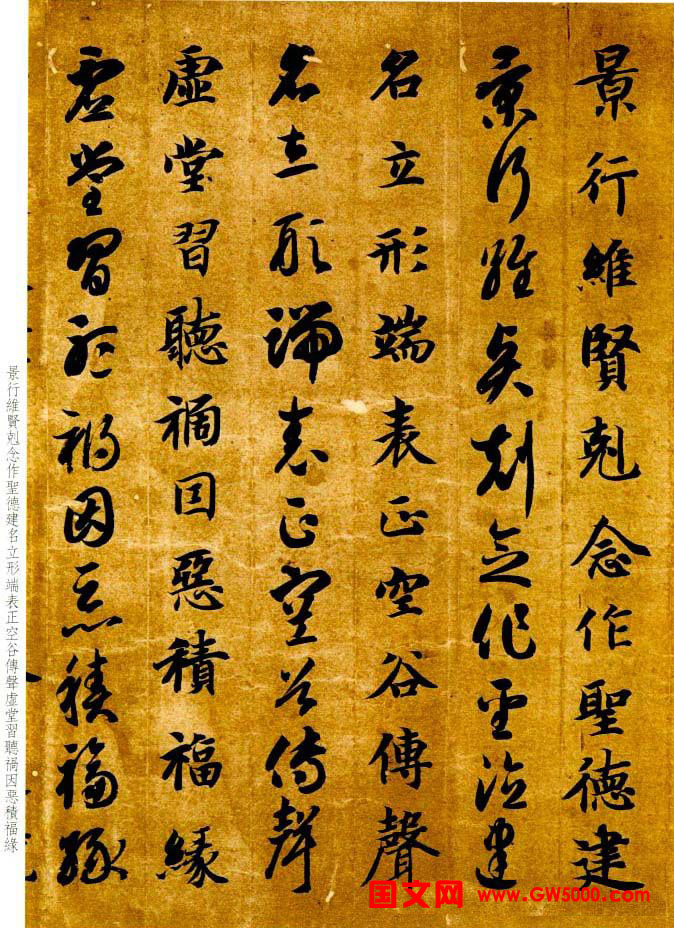 景行維賢剋念作聖德建
景行維賢剋念作聖德建
名立形端表正空谷傳聲
名立形端表正空谷傳聲
虛堂習聽禍因惡積福緣
虛堂習聽禍因惡積福緣
景行維賢剋念作聖德建名立形端表正空谷傳聲虛堂習聽禍因惡積福緣
国文网 www.GW5000.com